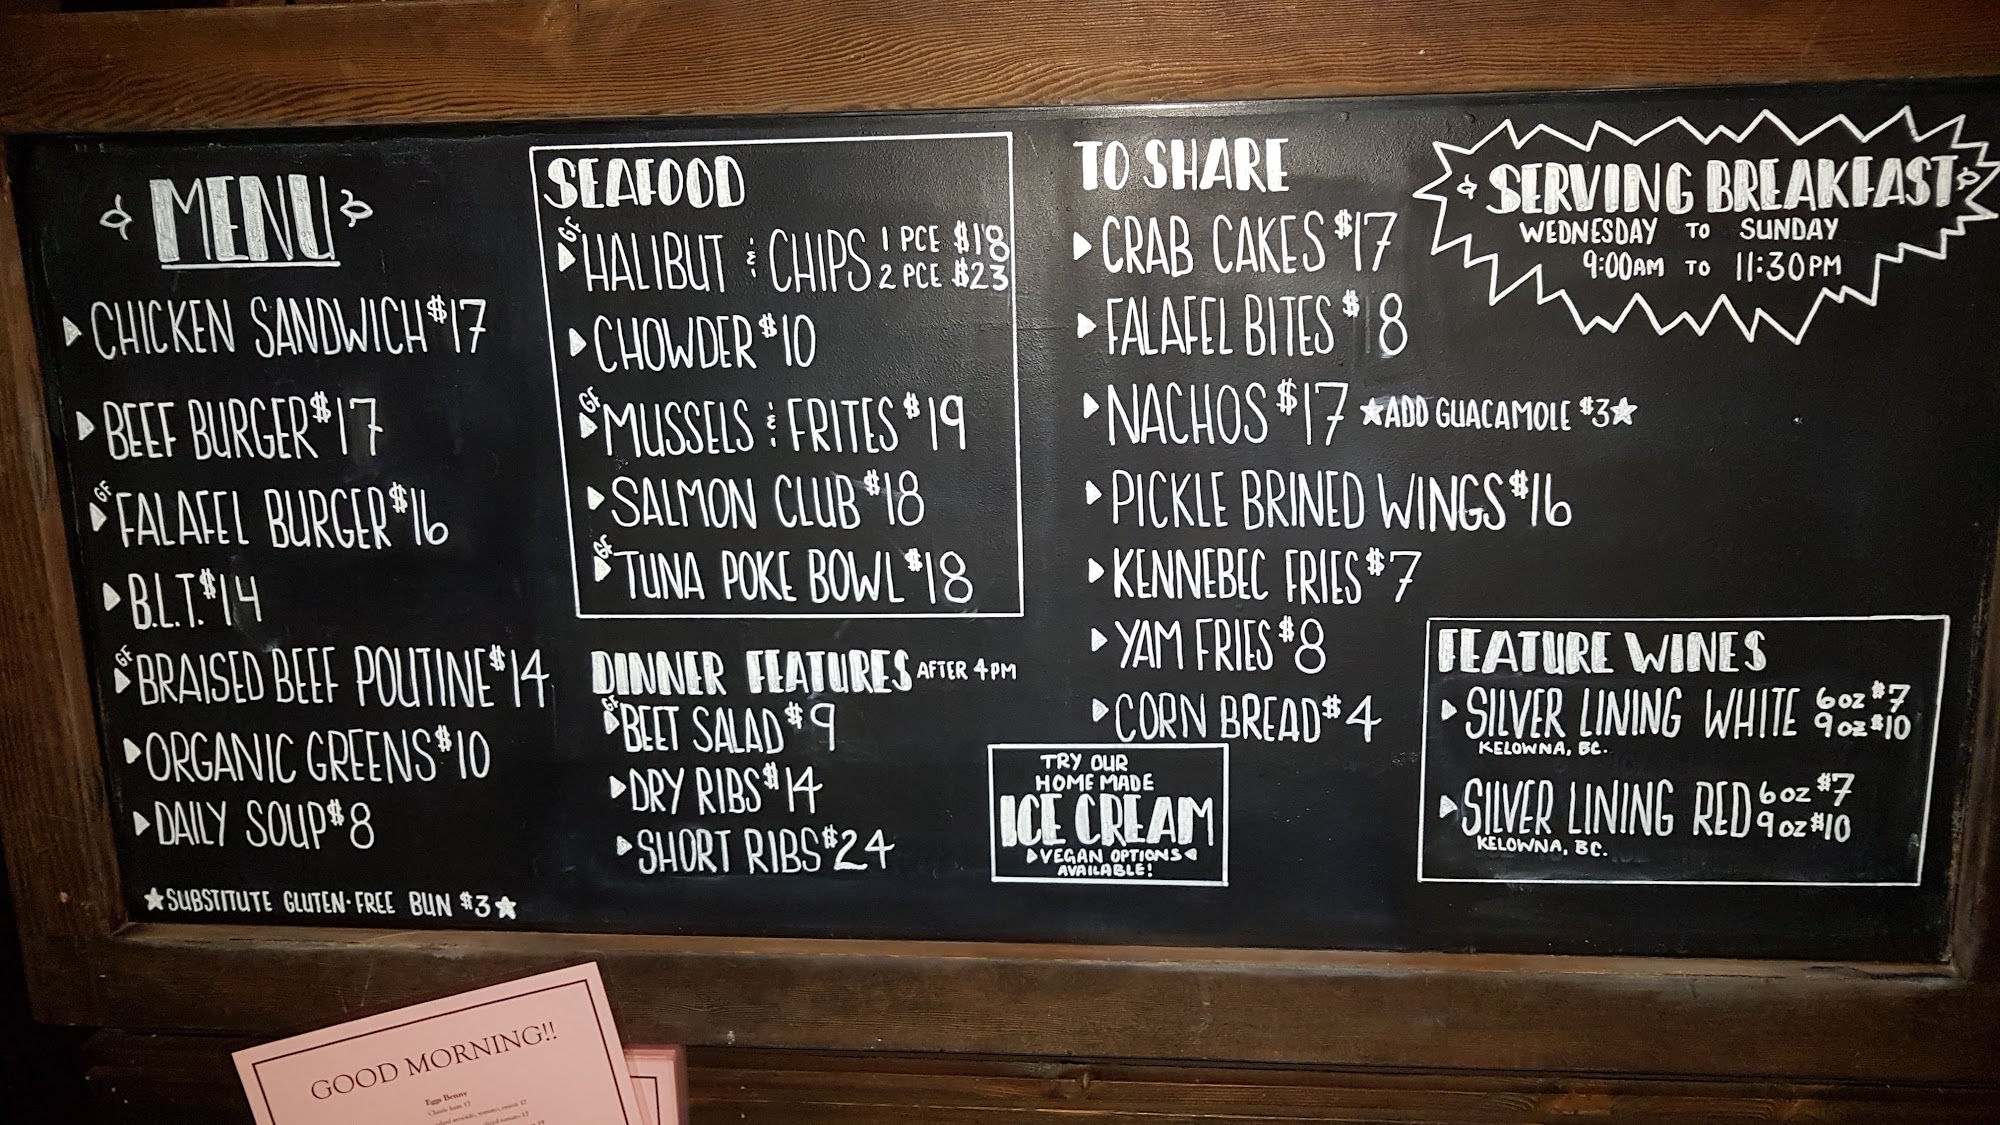 MENU
CHICKEN SANDWICH $17
BEEF BURGER $17
GF FALAFEL BURGER $16
B.L.T. $14
GF BRAISED BEEF POUTINE $14
ORGANIC GREENS $10
DAILY SOUP $8
SUBSTITUTE GLUTEN-FREE BUN $3
SEAFOOD
GF HALIBUT & CHIPS 1 PCE $18
2 PCE $23
CHOWDER $10
GF MUSSELS & FRITES $19
SALMON CLUB $18
GF TUNA POKE BOWL $18
DINNER FEATURES AFTER 4PM
GF BEET SALAD $9
DRY RIBS $14
SHORT RIBS $24
TO SHARE
CRAB CAKES $17
FALAFEL BITES $8
NACHOS $17 ADD GUACAMOLE $3
PICKLE BRINED WINGS $16
KENNEBEC FRIES $7
YAM FRIES $8
CORN BREAD $4
TRY OUR
HOME MADE
ICE CREAM
VEGAN OPTIONS
AVAILABLE!
SERVING BREAKFAST
WEDNESDAY TO SUNDAY
9:00AM TO 11:30PM
FEATURE WINES
SILVER LINING WHITE 6oz $7
9oz $10
KELOWNA, BC.
SILVER LINING RED 6oz $7
9oz $10
KELOWNA, BC.
GOOD MORNING!!
Eggs Benny
Classic ham 17
avocado, tomato, onion 17
tomato 17